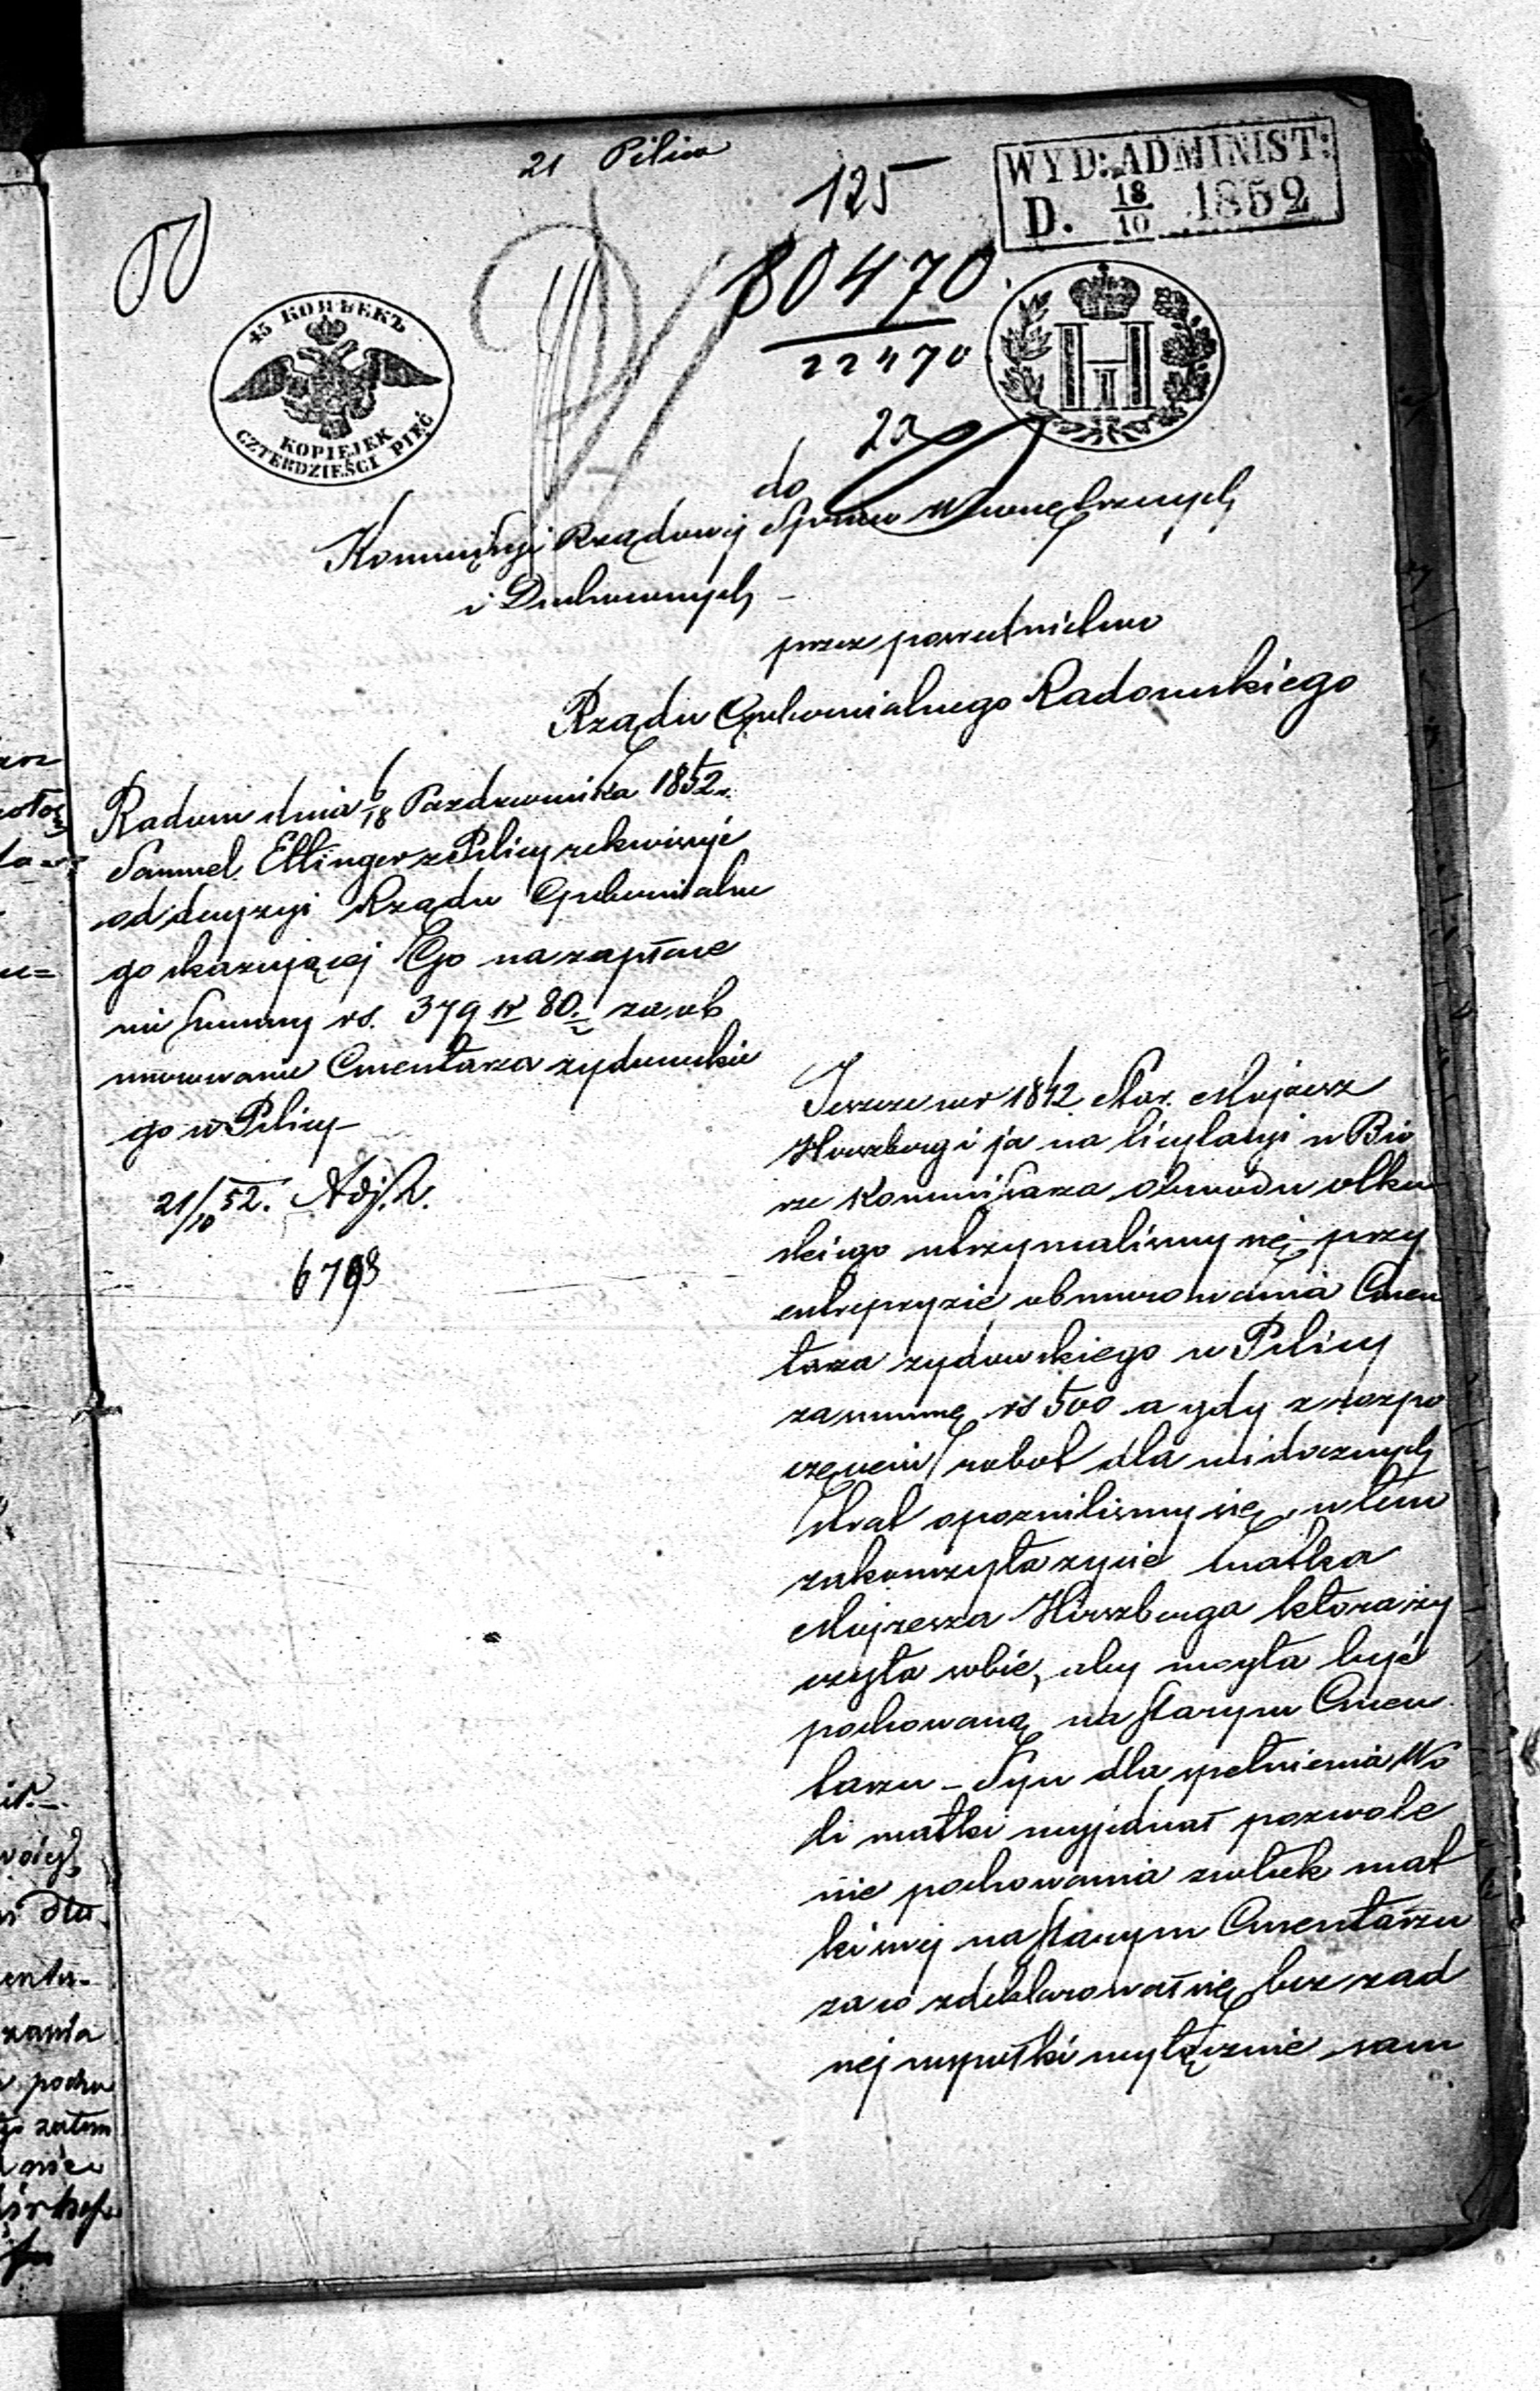 21 Pilica
125
WYD: ADMINIST:
D. 18/10 1852
80470
22470
45 КОПѢЕКЪ
KOPIEJEK
CZTERDZIEŚCI PIĘĆ
Н I
do
Kommissyi Rządowej Spraw Wewnętrznych
i Duchownych –
przez posrednictwo
Rządu Gubernialnego Radomskiego
Radom dnia 6/18 Pazdziernika 1852 r.
Samuel Ettinger z Pilicy rekurruje
od decyzyi Rządu Gubernialne
go skazującej Go na zapłace
nie summy rs. 379 k 80. za ob
murowanie Cmentarza zydowskie
go w Pilicy –
21/10 52.
6798
Jeszcze w r 1842 Star. Mojzesz
Herszberg i ja na licytacyi w Biu
rze Kommissarza Obwodu olku
skiego utrzymalismy się przy
entrepryzie obmurowania Cmen
tarza zydowskiego w Pilicy
za summę rs 500 a gdy z rozpo
częciem robot dla widocznych
strat opoznilismy się, w tem
zakonczyła zycie matka
Mojzesza Hirszberga ktora zy
czyła sobie, aby mogła być
pochowaną na starym Cmen
tarzu – Syn dla spełnienia Wo
li matki wyjednał pozwole
nie pochowania zwłok mat
ki swej na starym Cmentarzu
za co zdeklarował się bez zad
nej wspołki wyłącznie sam